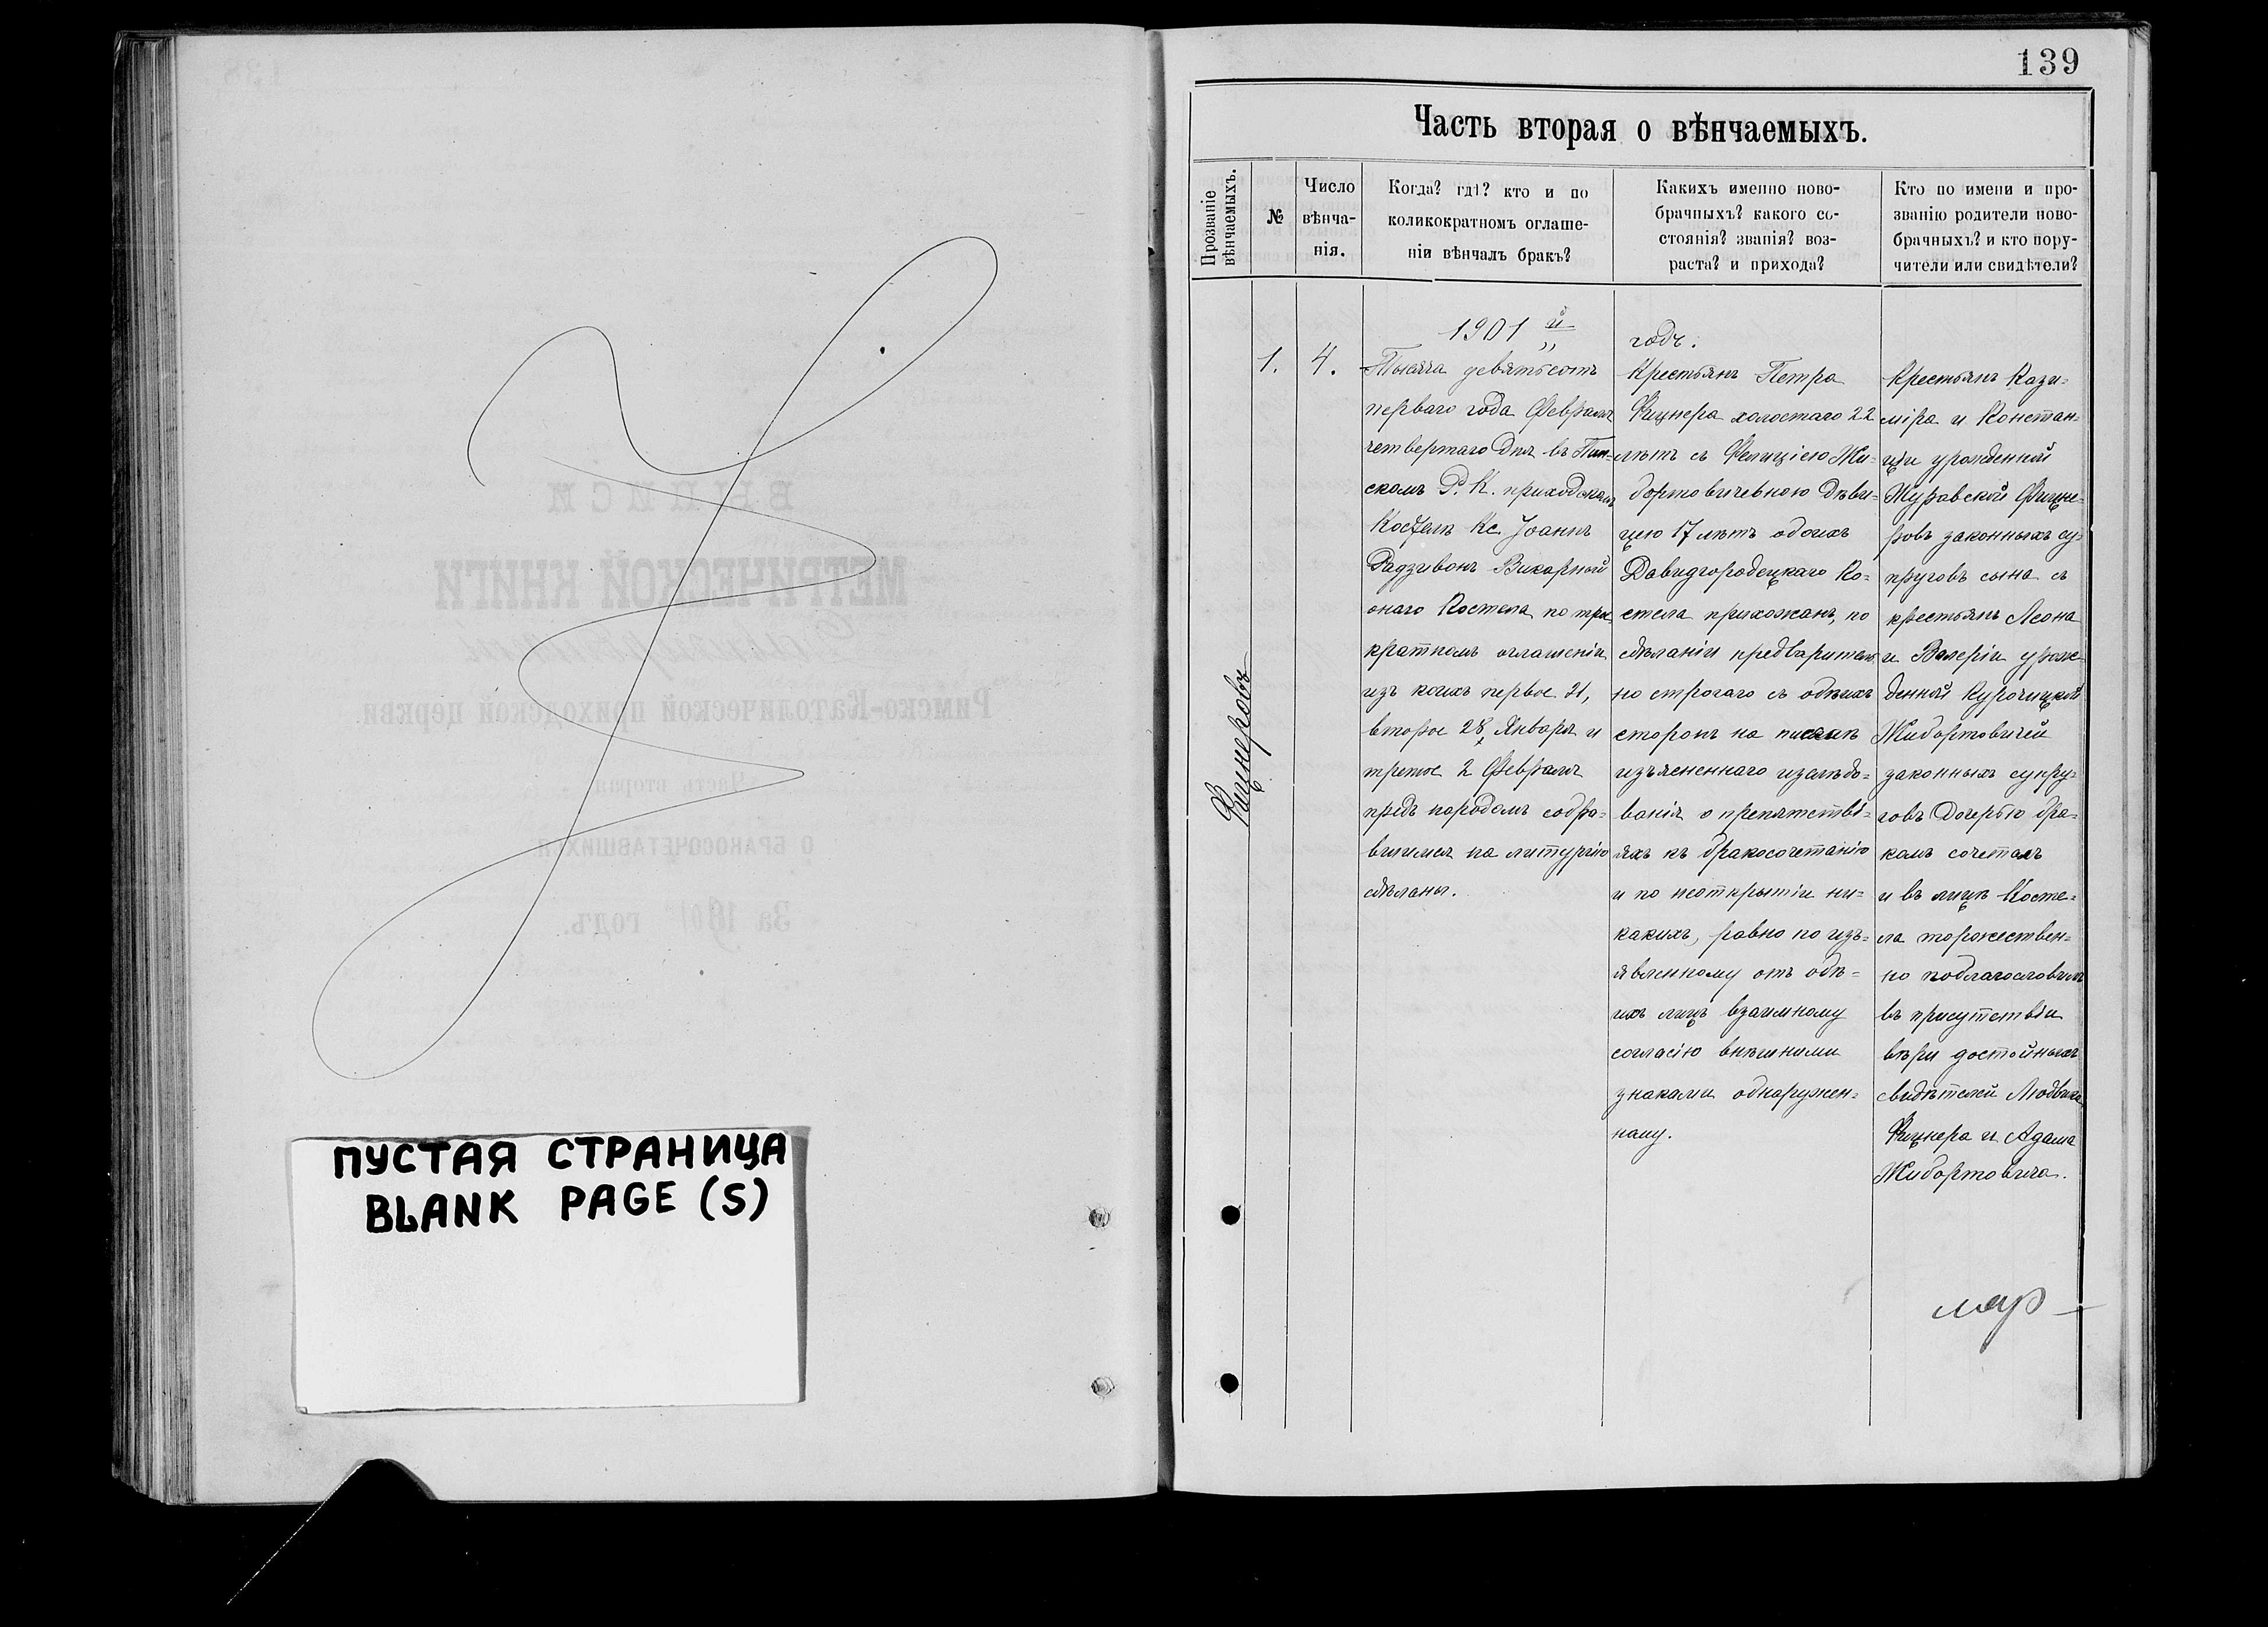 ПУСТАЯ СТРАНИЦА
BLANK PAGE (S)
139
Часть вторая о вѣнчаемыхъ.
Прозваніе
вѣнчаемыхъ.
№
Число
вѣнча-
нія.
Когда? гдѣ? кто и по
коликократномъ оглаше-
ніи вѣнчалъ бракъ?
Какихъ именно ново-
брачныхъ? какого со-
стоянія? званія? воз-
раста? и прихода?
Кто по имени и про-
званію родители ново-
брачныхъ? и кто пору-
чители или свидѣтели?
Фицнеровъ
1.
4.
1901 й
Тысяча девятьсотъ
перваго года Февраля
четвертаго дня въ Пин-
скомъ Р. К. приходскомъ
Костелѣ Кс. Іоаннъ
Радзивонъ Викарный
онаго Костела по трех
кратномъ оглашеніи
изъ коихъ первое 21,
второе 28, Января и
третье 2 Февраля
предъ народомъ собра-
вшимся на литургію
сдѣланы.
годъ:
Крестьянъ Петра
Фицнера холостаго 22
лѣтъ съ Фелиціею Жи-
бортовичевною дѣви-
цею 17 лѣтъ обоихъ
Давидгородецкаго Ко-
стела прихожанъ, по
сдѣланіи предваритель
но строгаго съ обѣихъ
сторонъ на письмѣ
изъясненнаго изслѣдо-
ванія о препятстві-
яхъ къ бракосочетанію
и по неоткрытіи ни-
какихъ, равно по изъ-
явленному отъ обѣ-
ихъ лицъ взаимному
согласію внѣшними
знаками обнаружен-
ному.
Крестьянъ Кази-
міра и Констан-
ціи урожденной
Журавской Фицне-
ровъ законныхъ су-
пруговъ сына съ
крестьянъ Леона
и Валеріи урож-
денной Курочицкой
Жибортовичей
законныхъ супру-
говъ дочерью бра-
комъ сочеталъ
и въ лицѣ Косте-
ла торжествен-
но поблагословилъ
въ присутствіи
вѣры достойныхъ
свидѣтелей Людвика
Фицнера и Адама
Жибортовича.